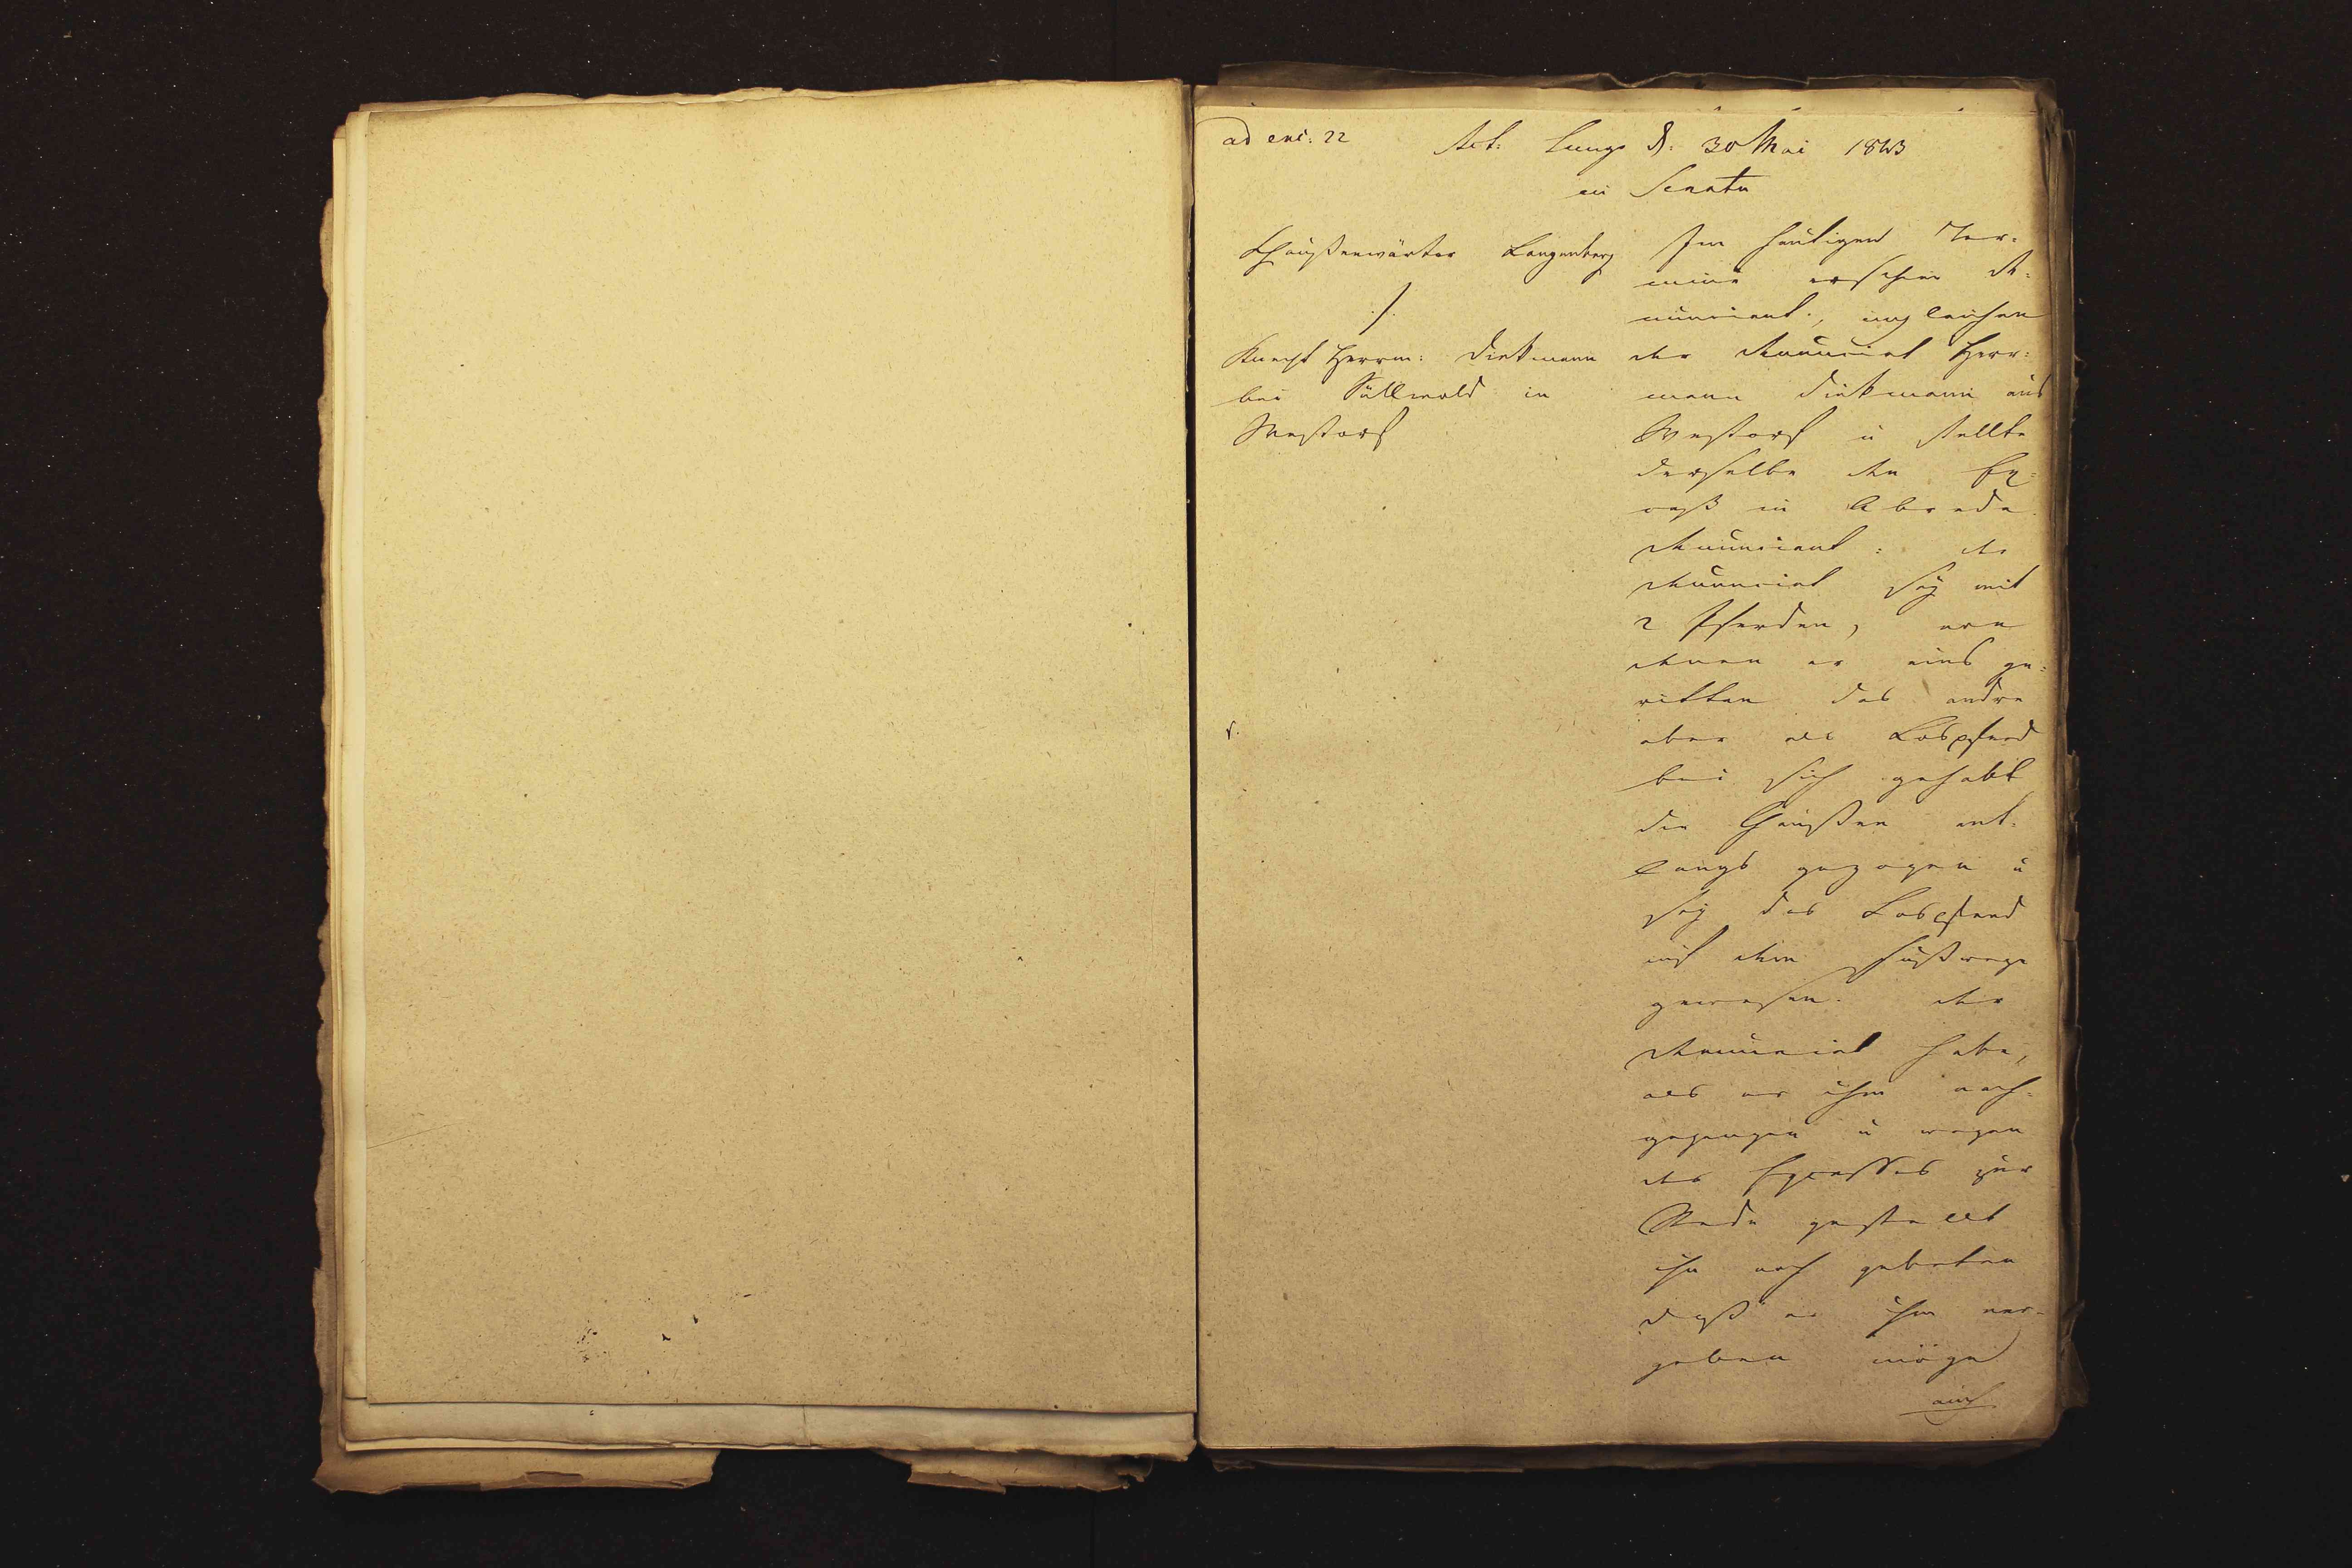 ad ex: 22
Act. Lemgo d. 30 Mai 1843
in Senatu
Chaußeewärter Langenberg
./.
Knecht Herrm: Diekmann
bei Süllwold in
Westorf
Im heutigen Ter-
mine erschien De-
nunciant, ungleichen
der Denunciat Herr-
mann Diekmann aus
Westorf u stellte
derselbe den Ex-
ceß in Abrede.
Denunciant: der
Denunciat sey mit
2 Pferden, von
denen er eins ge-
ritten das andre
aber als Lospferd
bei sich gehabt
die Chaußee ent-
langs gezogen u
sey das Lospferd
auf dem Fußwege
gewesen. Der
Denunciat habe,
als er ihm nach-
gegangen u wegen
des Excesses zur
Rede gestellt
ihn noch gebeten
daß er ihm ver-
geben möge
auch